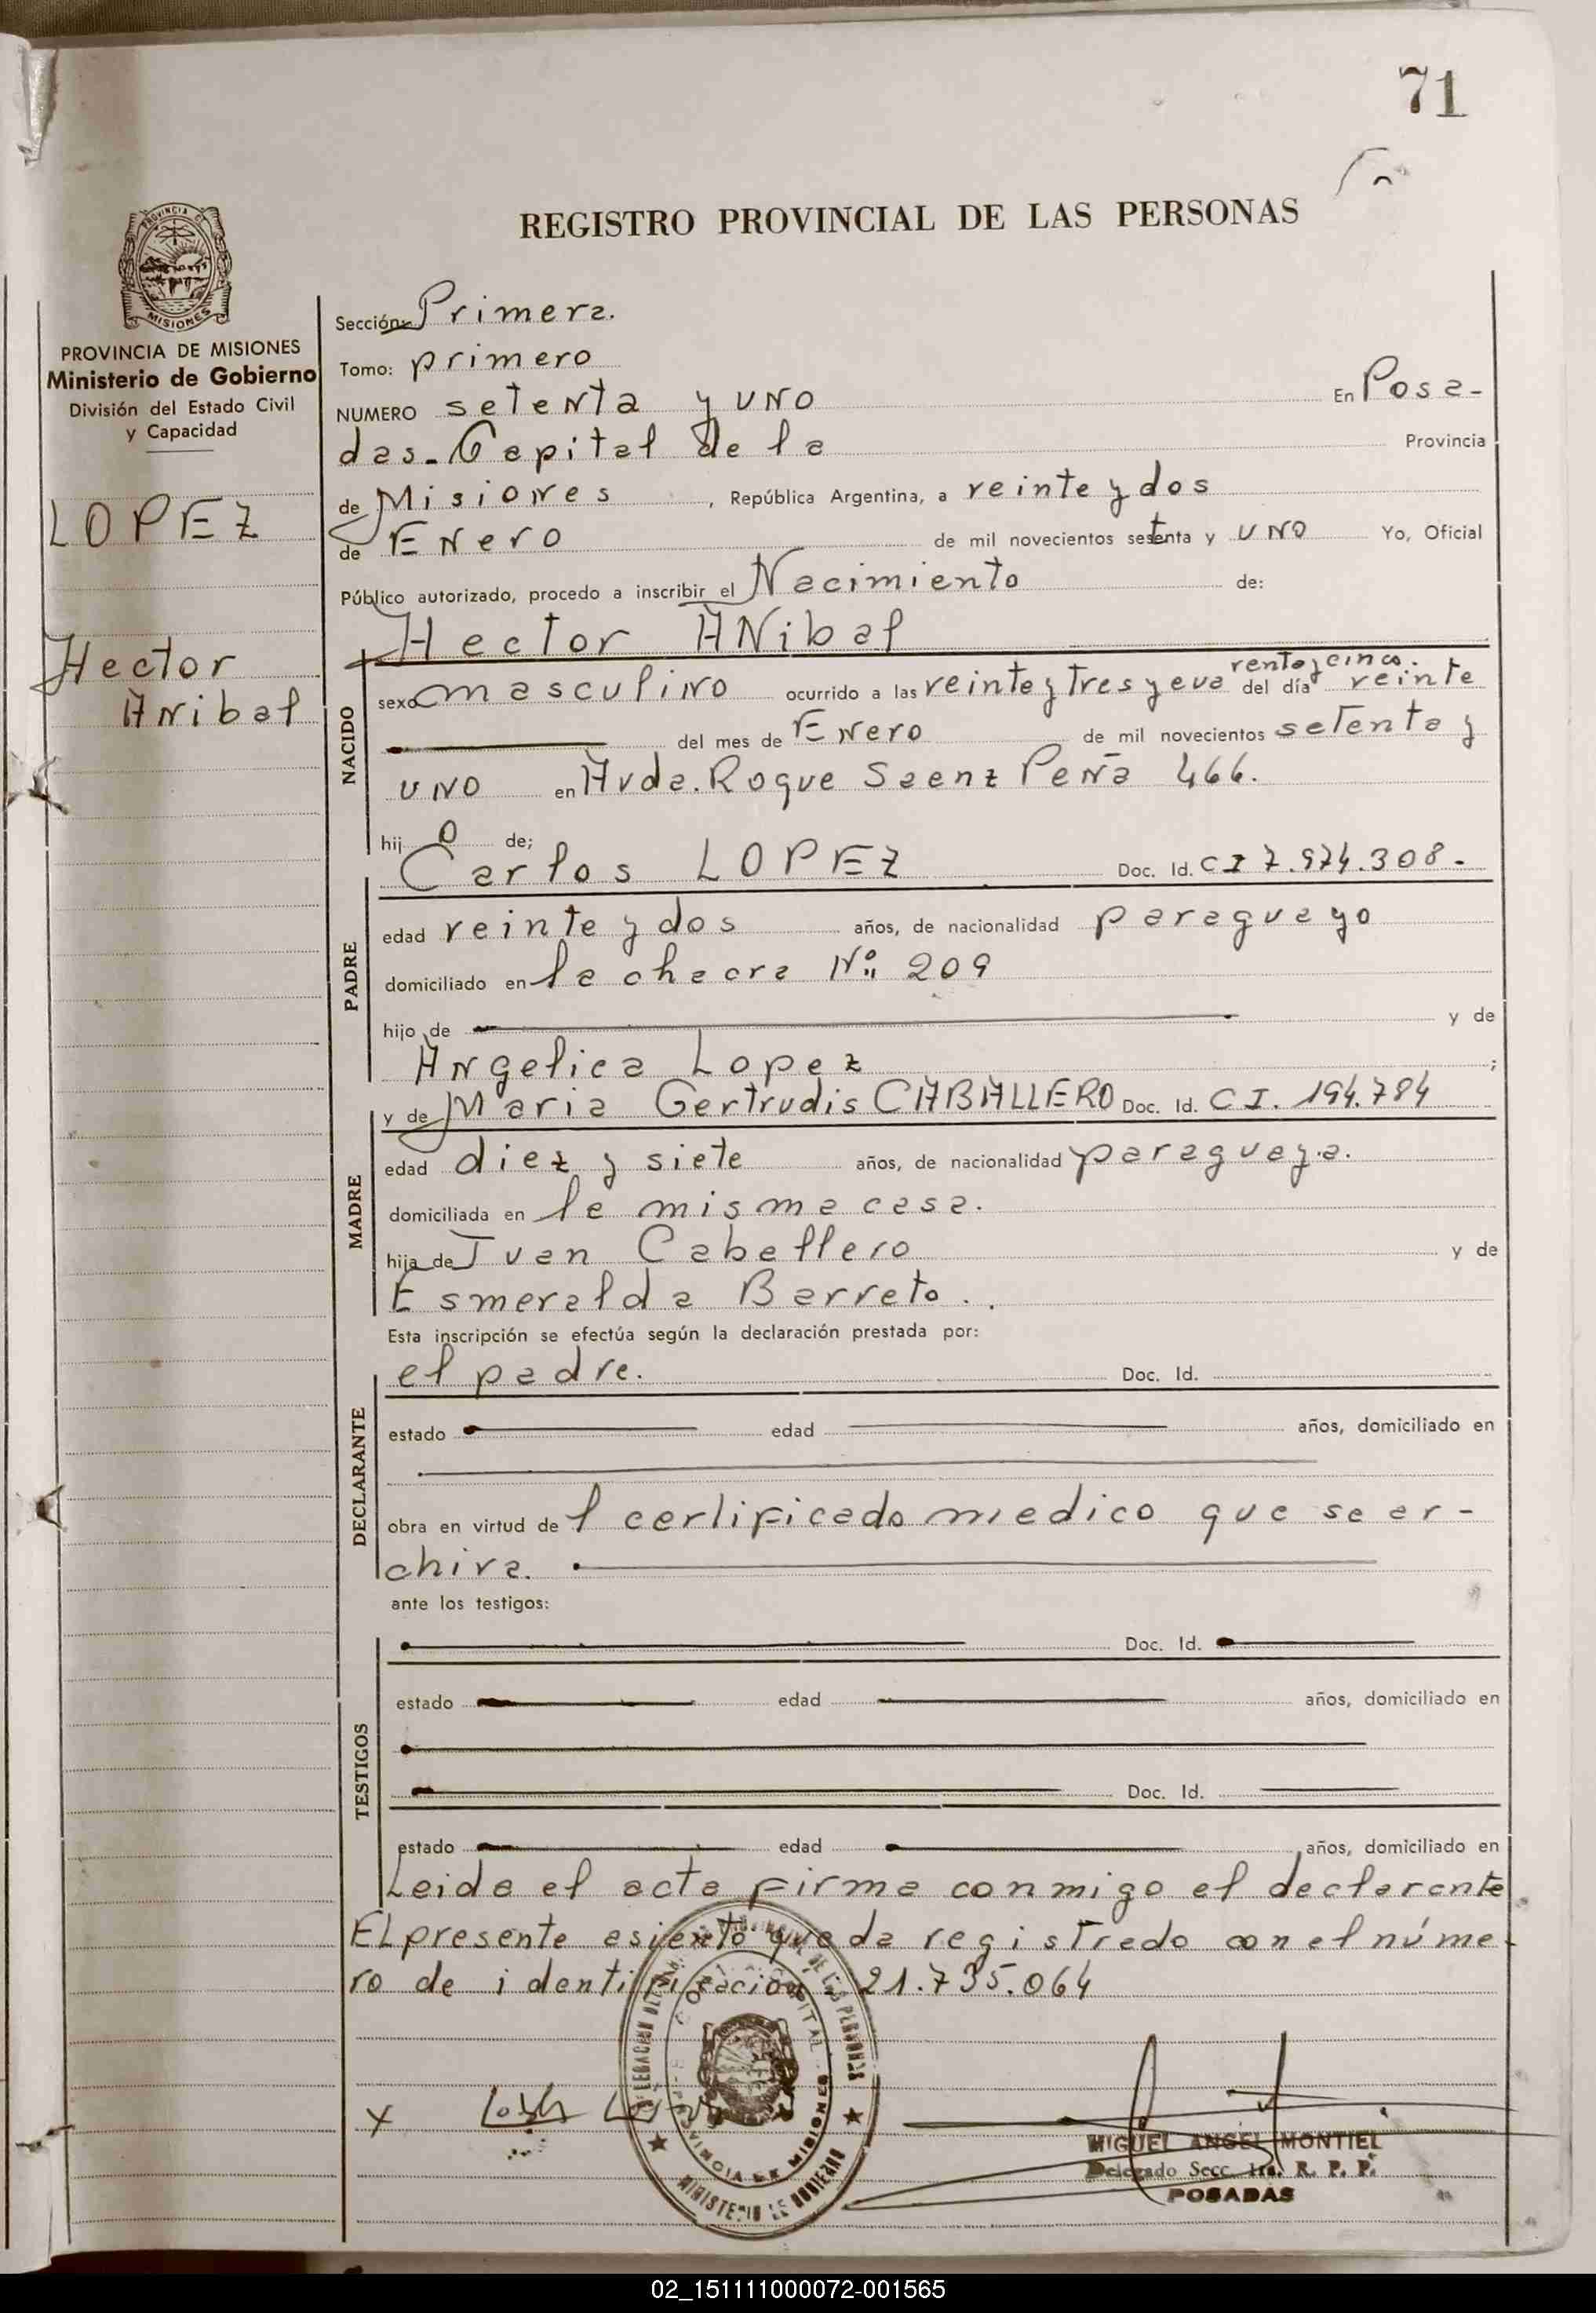 71
REGISTRO PROVINCIAL DE LAS PERSONAS
PROVINCIA DE MISIONES
Ministerio de Gobierno
División del Estado Civil
y Capacidad
LOPEZ
Hector
Anibal
Sección: Primera.
Tomo: primero
NUMERO setenta y uno En Posa-
das. Capital de la Provincia
de Misiones, República Argentina, a veinte y dos
de Enero de mil novecientos setenta y uno Yo, Oficial
Público autorizado, procedo a inscribir el Nacimiento de:
Hector Anibal
NACIDO
renta y cinco.
sexo masculino ocurrido a las veinte y tres y cua del día veinte
del mes de Enero de mil novecientos setenta y
uno en Avda. Roque Saenz Peña 466.
hijo de;
Carlos LOPEZ Doc. Id. CI 7.974.308.-
PADRE
edad veinte y dos años, de nacionalidad paraguayo
domiciliado en la chacra Nº 209
hijo de y de
Angelica Lopez;
y de Maria Gertrudis CABALLERO Doc. Id. C I. 194.784
MADRE
edad diez y siete años, de nacionalidad paraguaya.
domiciliada en la misma casa.
hija de Juan Caballero y de
Esmeralda Barreto.
Esta inscripción se efectúa según la declaración prestada por:
el padre. Doc. Id.
DECLARANTE
estado edad años, domiciliado en
obra en virtud del certificado medico que se ar-
chiva.
ante los testigos:
TESTIGOS
Doc. Id.
estado edad años, domiciliado en
Doc. Id.
estado edad años, domiciliado en
Leida el acta firma conmigo el declarante
El presente asiento queda registrado con el núme-
ro de identificacion: 21.735.064
PROVINCIA DE MISIONES
MINISTERIO DE GOBIERNO
X
MIGUEL ANGEL MONTIEL
Delegado Secc. 1ra. R. P. P.
POSADAS
02_151111000072-001565